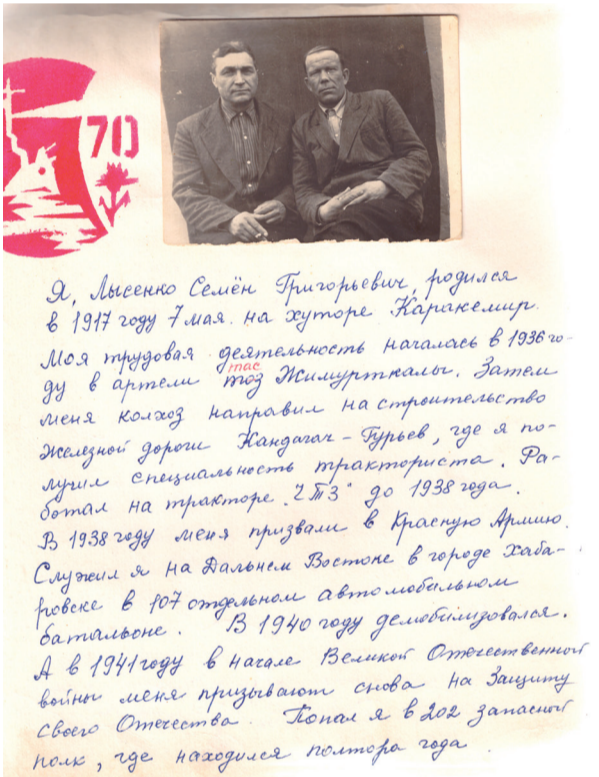 70
Я, Лысенко Семён Григорьевич, родился
в 1917 году 7 мая. на хуторе Каракемир.
Моя трудовая деятельность началась в 1936 го-
тас
ду в артели тоз Жимурткалы. Затем
меня колхоз направил на строительство
железной дороги Кандагач – Гурьев, где я по-
лучил специальность тракториста. Ра-
ботал на тракторе „ЧТЗ" до 1938 года.
В 1938 году меня призвали в Красную Армию.
Служил я на Дальнем Востоке в городе Хаба-
ровске в 107 отдельном автомобильном
батальоне. В 1940 году демобилизовался.
А в 1941 году в начале Великой Отечественной
войны меня призывают снова на Защиту
своего Отечества. Попал я в 202 запасной
полк, где находился полтора года.